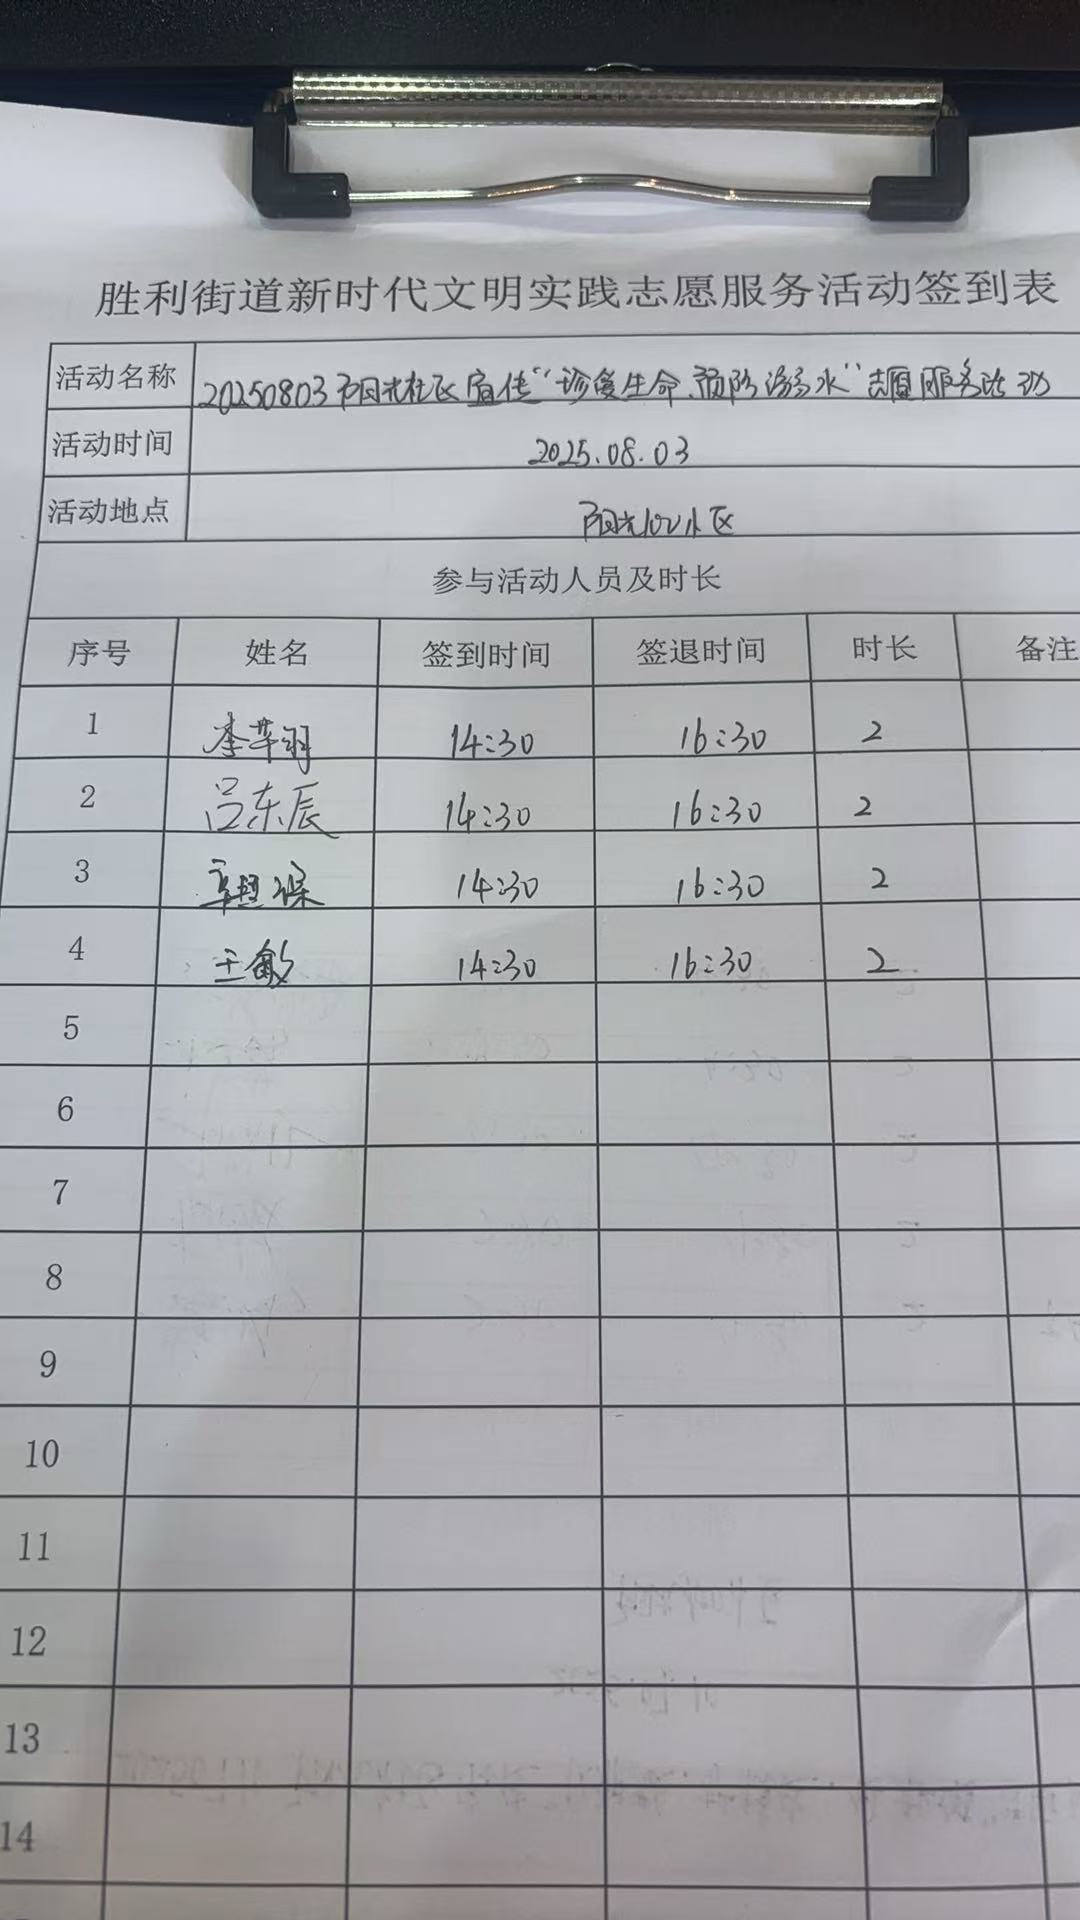 胜利街道新时代文明实践志愿服务活动签到表
活动名称 20250803阳光社区宣传“珍爱生命、预防溺水”志愿服务活动
活动时间 2025.08.03
活动地点 阳光100小区
参与活动人员及时长
序号 姓名 签到时间 签退时间 时长 备注
1 李芊羽 14:30 16:30 2
2 吕东辰 14:30 16:30 2
3 14:30 16:30 2
4 王敏 14:30 16:30 2
5
6
7
8
9
10
11
12
13
14